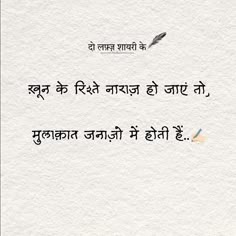 दो लफ़्ज़ शायरी के
ख़ून के रिश्ते नाराज़ हो जाएं तो,
मुलाक़ात जनाज़ो में होती हैं..